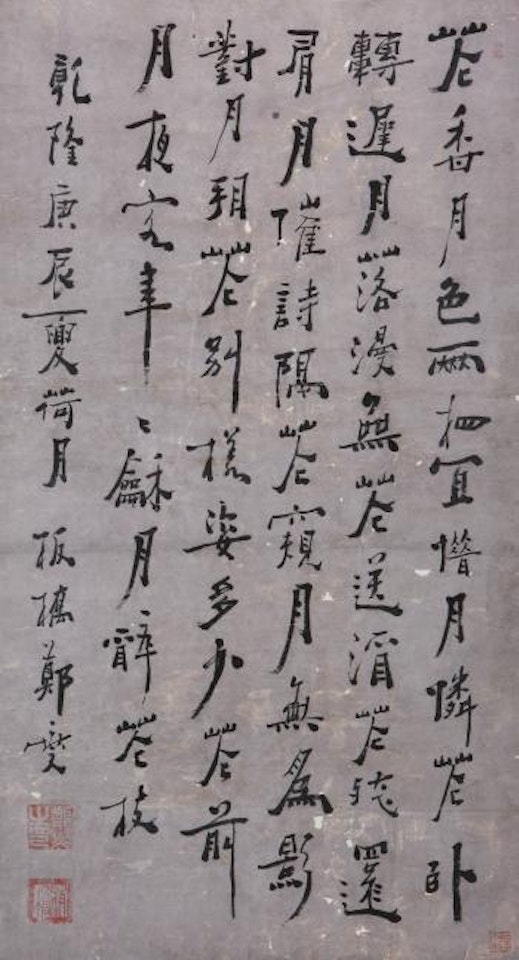 花香月色兩相宜惜月憐花卧
轉遲月落漫無花送酒花殘還
有月催詩隔花窺月無為影
對月花別樣姿多少花前
月夜客年〻龢月醉花枝
乾隆庚辰夏荷月 板橋鄭燮